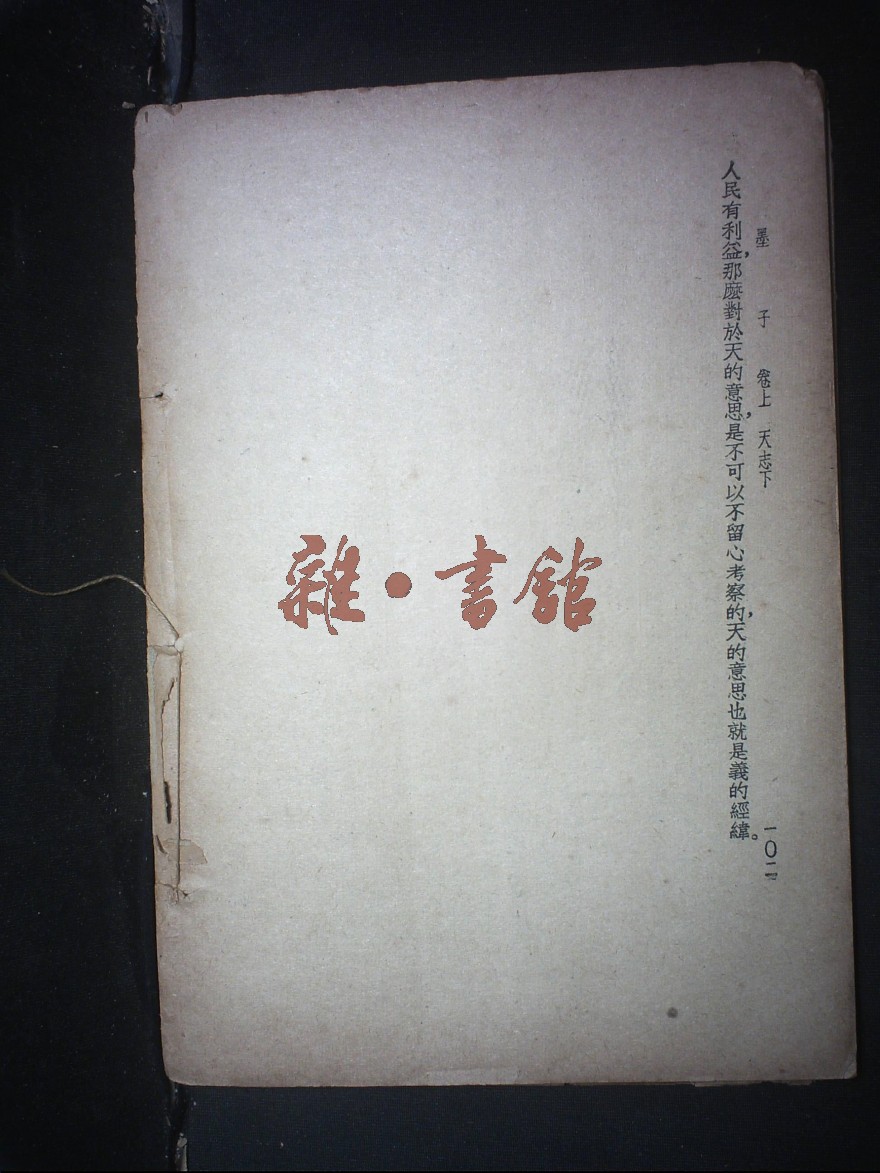 墨子 卷上 天志下
一〇二
人民有利益，那麼對於天的意思，是不可以不留心考察的，天的意思也就是義的經緯。
雜·書館